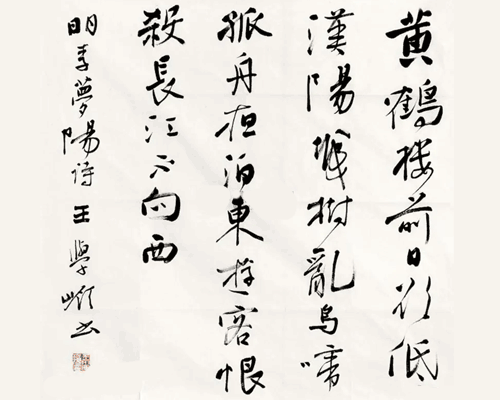 黄鶴楼前日欲低
漢陽城樹亂烏啼
孤舟夜泊東遊客恨
殺長江不向西
明李夢陽詩 王學嶺书